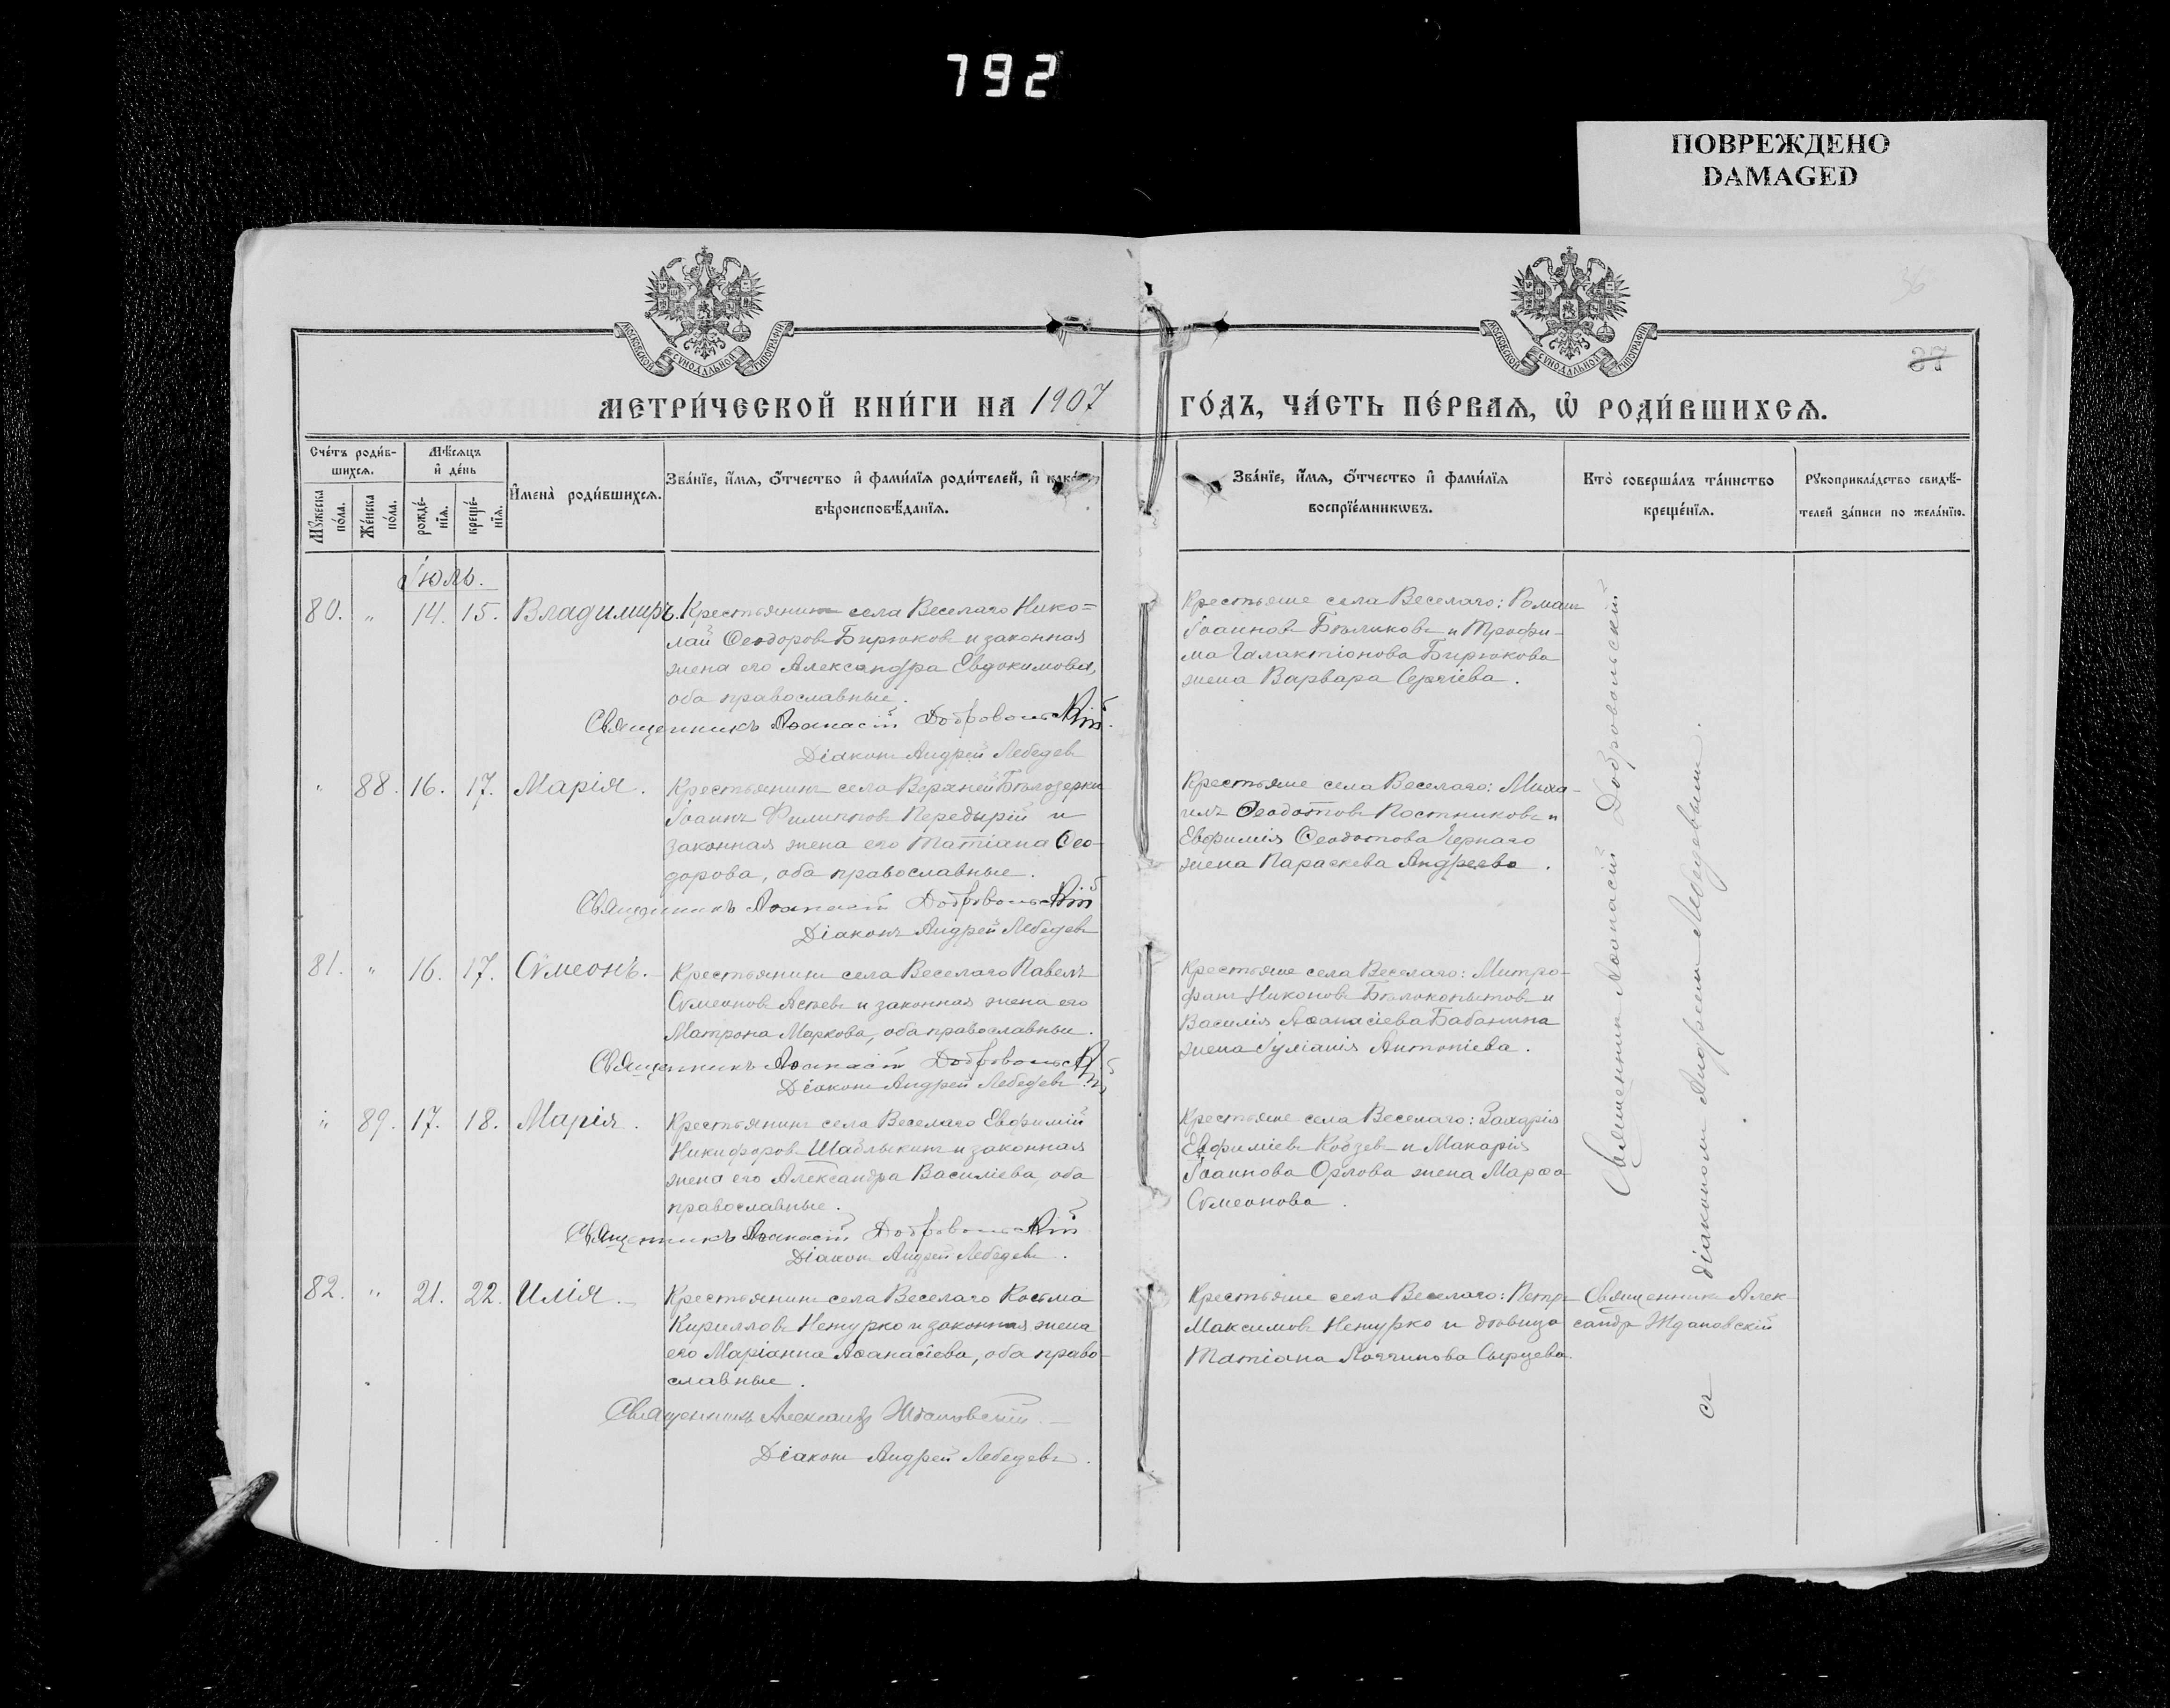 792
ПОВРЕЖДЕНО
DAMAGED
МОСКОВСКОЙ СѴНОДАЛЬНОЙ ТИПОГРАФІИ
МОСКОВСКОЙ СѴНОДАЛЬНОЙ ТИПОГРАФІИ
36
37
МЕТРИ́ЧЕСКОЙ КНИ́ГИ НА 1907 ГО́ДЪ, ЧА́СТЬ ПЕ́РВАЯ, Ѡ҆ РОДИ́ВШИХСѦ.
Сче́тъ роди́в-
шихсѧ.
Мѣ́сѧцъ
и҆ де́нь
Мꙋ́жеска по́ла.
Же́нска по́ла.
рожде́-
нїѧ.
креще́-
нїѧ.
И҆мена̀ роди́вшихсѧ.
Зва́нїе, и҆́мѧ, ѻ҆́тчество и҆ фами́лїѧ роди́телей, и҆ како́гѡ
вѣроисповѣ́данїѧ.
Зва́нїе, и҆́мѧ, ѻ҆́тчество и҆ фами́лїѧ
воспрїе́мникѡвъ.
Кто̀ соверша́лъ та́инство
креще́нїѧ.
Рꙋкоприкла́дство свидѣ́-
телей за́писи по жела́нїю.
Іюль.
80. " 14. 15. Владиміръ. Крестьянинъ села Веселаго Нико=
лай Ѳеодоровъ Бирюковъ и законная
жена его Александра Евдокимова,
оба православные.
Священникъ Аѳанасій Добровольскій.
Діаконъ Андрей Лебедевъ
Крестьяне села Веселаго: Романъ
Іоанновъ Бѣликовъ и Трофи-
ма Галактіонова Бирюкова
жена Варвара Сергіева.
" 88. 16. 17. Марія. Крестьянинъ села Верхней Бѣлозерки
Іоаннъ Филипповъ Передырій и
законная жена его Татіана Ѳео-
дорова, оба православные.
Священникъ Аѳанасій Добровольскій
Діаконъ Андрей Лебедевъ
Крестьяне села Веселаго: Миха-
илъ Ѳеодотовъ Постниковъ и
Евфимія Ѳеодотова Чернаго
жена Параскева Андреева.
81. " 16. 17. Сѵмеонъ. Крестьянинъ села Веселаго Павелъ
Сѵмеоновъ Асѣевъ и законная жена его
Матрона Маркова, оба православные.
Священникъ Аѳанасій Добровольскій
Діаконъ Андрей Лебедевъ
Крестьяне села Веселаго: Митро-
фанъ Никоновъ Бѣлокопытовъ и
Василія Аѳанасіева Бабанина
жена Іуліанія Антоніева.
" 89. 17. 18. Марія. Крестьянинъ села Веселаго Евфимій
Никифоровъ Шаблыкинъ и законная
жена его Александра Василіева, оба
православные.
Священникъ Аѳанасій Добровольскій
Діаконъ Андрей Лебедевъ.
Крестьяне села Веселаго: Захарія
Евфиміевъ Кобзевъ и Макарія
Іоаннова Орлова жена Марѳа
Сѵмеонова.
82. " 21. 22. Илія. Крестьянинъ села Веселаго Косьма
Кирилловъ Нежурко и законная жена
его Маріанна Аѳанасіева, оба право-
славные.
Священникъ Александръ Ждановскій.
Діаконъ Андрей Лебедевъ.
Крестьяне села Веселаго: Петръ
Максимовъ Нежурко и дѣвица
Татіана Сырцева.
Священникъ Алек-
сандръ Ждановскій
Священникъ Аѳанасій Добровольскій
съ діакономъ Андреемъ Лебедевымъ.